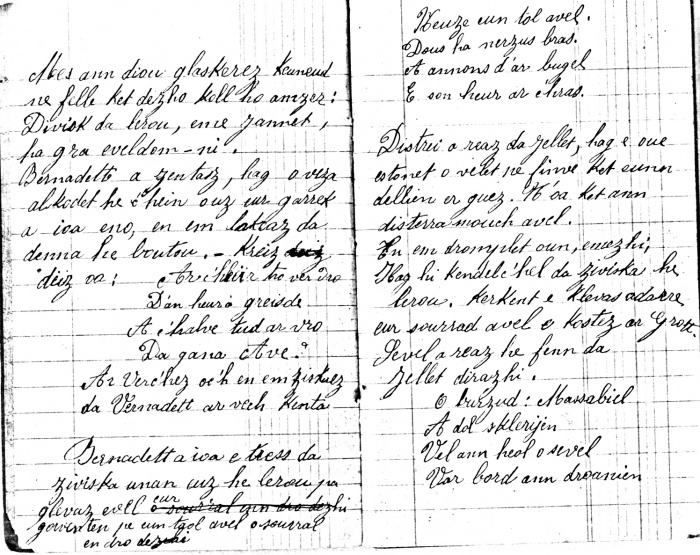 Mes ann diou glaskerez keuneud
ne felle ket dezho koll ho amzer:
Divisk da lerou, eme Jannet,
ha gra eveldom-ni.
Bernadett a zentaz, hag o veza
alkodet he c'hein ouz eur garrek
a ioa eno, en em lakeaz da
denna he boutou. - Kreiz
deiz oa: Ar c'hleier tro ver dro
D'an heur a greisde
A c'halve tud ar vro
Da gana Ave.
Ar Verc'hez oc'h en em ziskuez
da Vernadett ar vech kenta
Bernadett a ioa e tress da
ziviska unan euz he lerou pa
glevaz evell eur
gorventen pe eun taol avel o sourral
en dro dezhi
Neuze eun tol avel.
Dous ha nerzus bras.
A annons d'ar bugel
E son heur ar c'hras.
Distrei a reaz da zellet, hag e oue
estonet o velet ne finve ket eunn
dellien er guez. N'oa ket ann
disterra mouch avel.
En em dromplet oun, emezhi,
Hag hi kendelc'hel da ziviska he
lerou. Kerkent e klevas adarre
eur sourrad avel e kostez ar Grott.
Sevel a reaz he fenn da
zellet dirazhi.
O burzud: Massabiel
A dol sklerijen
Vel ann heol o sevel
Var bord ann